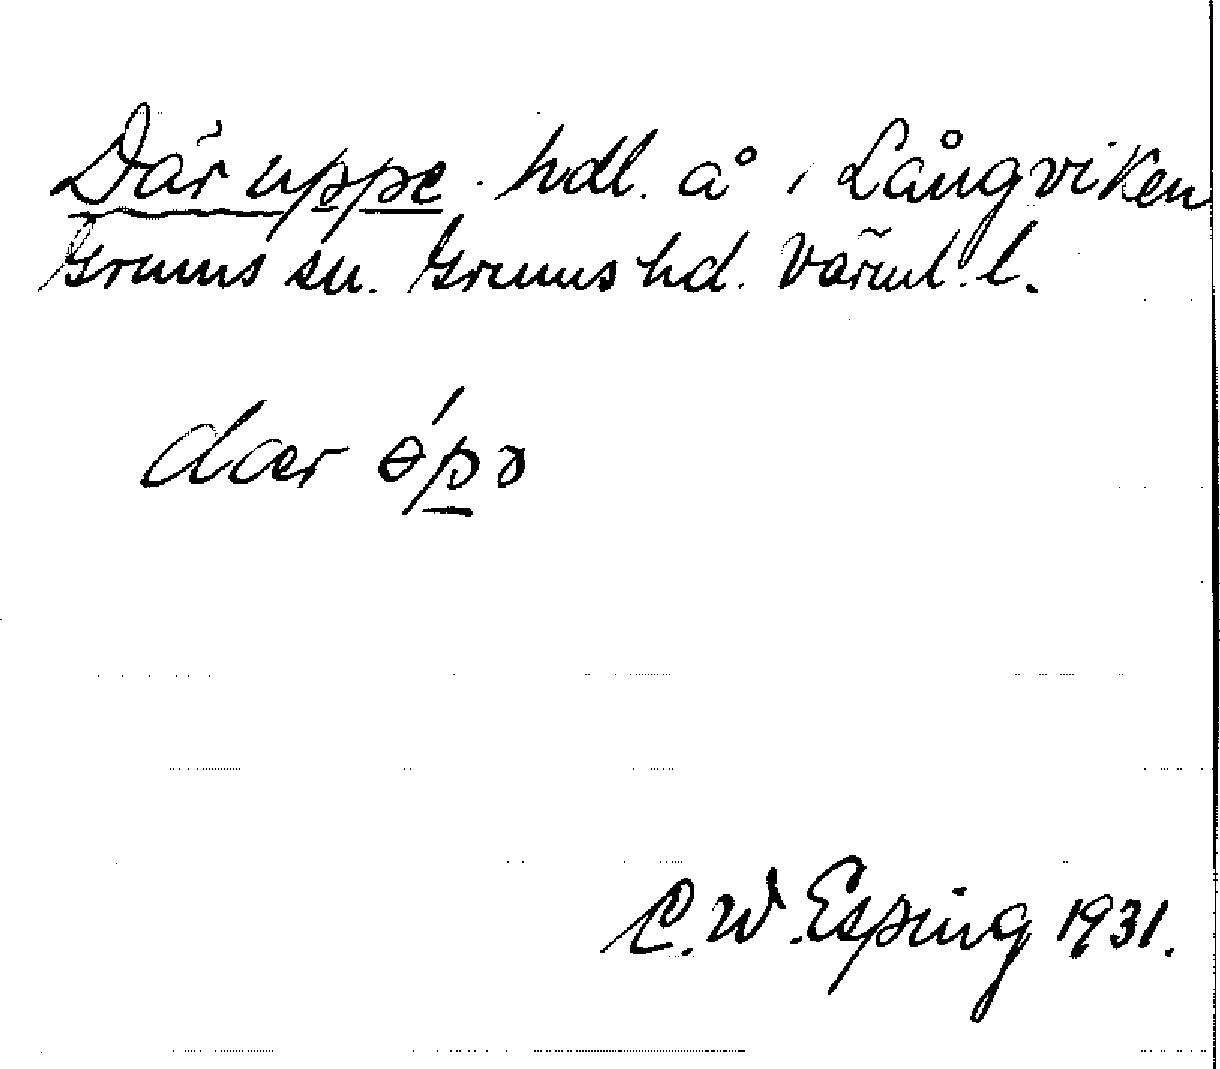 Där uppe. hdl. å i Långviken
Grums sn. Grums hd. Värml. l.
dær ɵ́pə
C. W. Esping 1931.